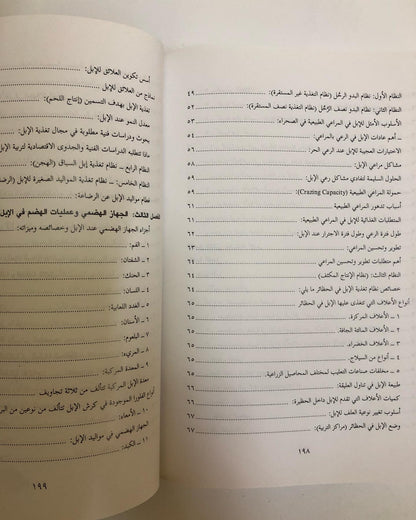 النظام الأول: نظام البدو الرحّل (نظام التغذية غير المستقرة): ٤٩
النظام الثاني: نظام البدو نصف الرّحل (نظام التغذية نصف المستقرة): ٥٢
الأسلوب الأمثل للإبل في المراعي الطبيعية في الصحراء: ٥٣
ـ أهم عادات الإبل في الرعي بالمراعي: ٥٤
الاختيارات العجيبة للإبل عند الرعي الحر: ٥٧
مشاكل مراعي الإبل:
الحلول السليمة لتفادي مشاكل رعي الإبل:
حمولة المراعي الطبيعية (Crazing Capacity): ٥٩
أسباب تدهور المراعي الطبيعية:
المتطلبات الغذائية للإبل في المراعي الطبيعية:
طول فترة الرعي وطول فترة الاجترار عند الإبل:
تطوير وتحسين المراعي:
أهم متطلبات تطوير وتحسين المراعي
النظام الثالث: (نظام الإنتاج المكثف):
خصائص نظام تغذية الإبل في الحظائر ما يلي:
أنواع الأعلاف التي تتغذى عليها الإبل في الحظائر
١ ـ الأعلاف المركزة.
٢ ـ الأعلاف المالئة الجافة. ٦٥
٣ ـ الأعلاف الخضراء. ٦٥
٤ ـ أنواع من السيلاج. ٦٥
٥ ـ مخلفات صناعات التعليب لمختلف المحاصيل الزراعية. ٦٥
طبيعة الإبل في تناول العليقة: ٦٦
كميات الأعلاف التي تقدم للإبل داخل الحظيرة: ٦٦
أسلوب تغيير نوعية العلف للإبل: ٦٧
وضع الإبل في الحظائر (مراكز التربية): ٦٧
١٩٨
أسس تكوين العلائق للإبل:
نماذج من العلائق للإبل
تغذية الإبل بهدف التسمين (إنتاج اللحم):
معدل النمو عند الإبل:
بحوث ودراسات فنية مطلوبة في مجال تغذية الإبل:
ماذا تتطلبه الدراسات الفنية والجدوى الاقتصادية لتربية الإبل
النظام الرابع ـ نظام تغذية إبل السباق (الهجن):
النظام الخامس: ـ نظام تغذية المواليد الصغيرة للإبل
نظام فطام مواليد الإبل عن الرضاعة:
الفصل الثالث: الجهاز الهضمي وعمليات الهضم في الإبل
أجزاء الجهاز الهضمي عند الإبل وخصائصه وميزاته:
١ ـ الفم:
٢ ـ الشفتان:
٣ ـ الحنك:
٤ ـ اللسان:
٥ ـ الغدد اللعابية:
٦ ـ الأسنان:
٧ ـ البلعوم:
٨ ـ المريء:
٩ ـ المعدة المركبة:
معدة الإبل المركبة تتألف من ثلاثة تجاويف
أنواع الفلورا الموجودة في كرش الإبل تتألف من نوعين من
١٠ ـ الأمعاء:
الجهاز الهضمي في مواليد الإبل:
١١ ـ الكبد:
١٩٩